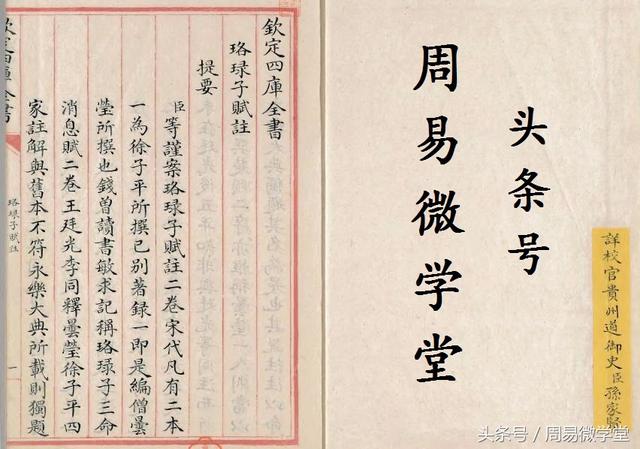 钦定四庫全書
珞琭子賦註
提要
臣等謹案珞琭子賦註二卷宋代凡有二本
一為徐子平所撰已别著錄一即是編僧曇
瑩所撰也錢曽讀書敏求記稱珞琭子三命
消息賦二卷王廷光李同釋曇瑩徐子平四
家註解與舊本不符永樂大典所載則獨題
欽定四庫全書
珞琭子賦註
一
头条号
周易微学堂
詳校官貴州道御史臣孫家賢
头条号/周易微学堂